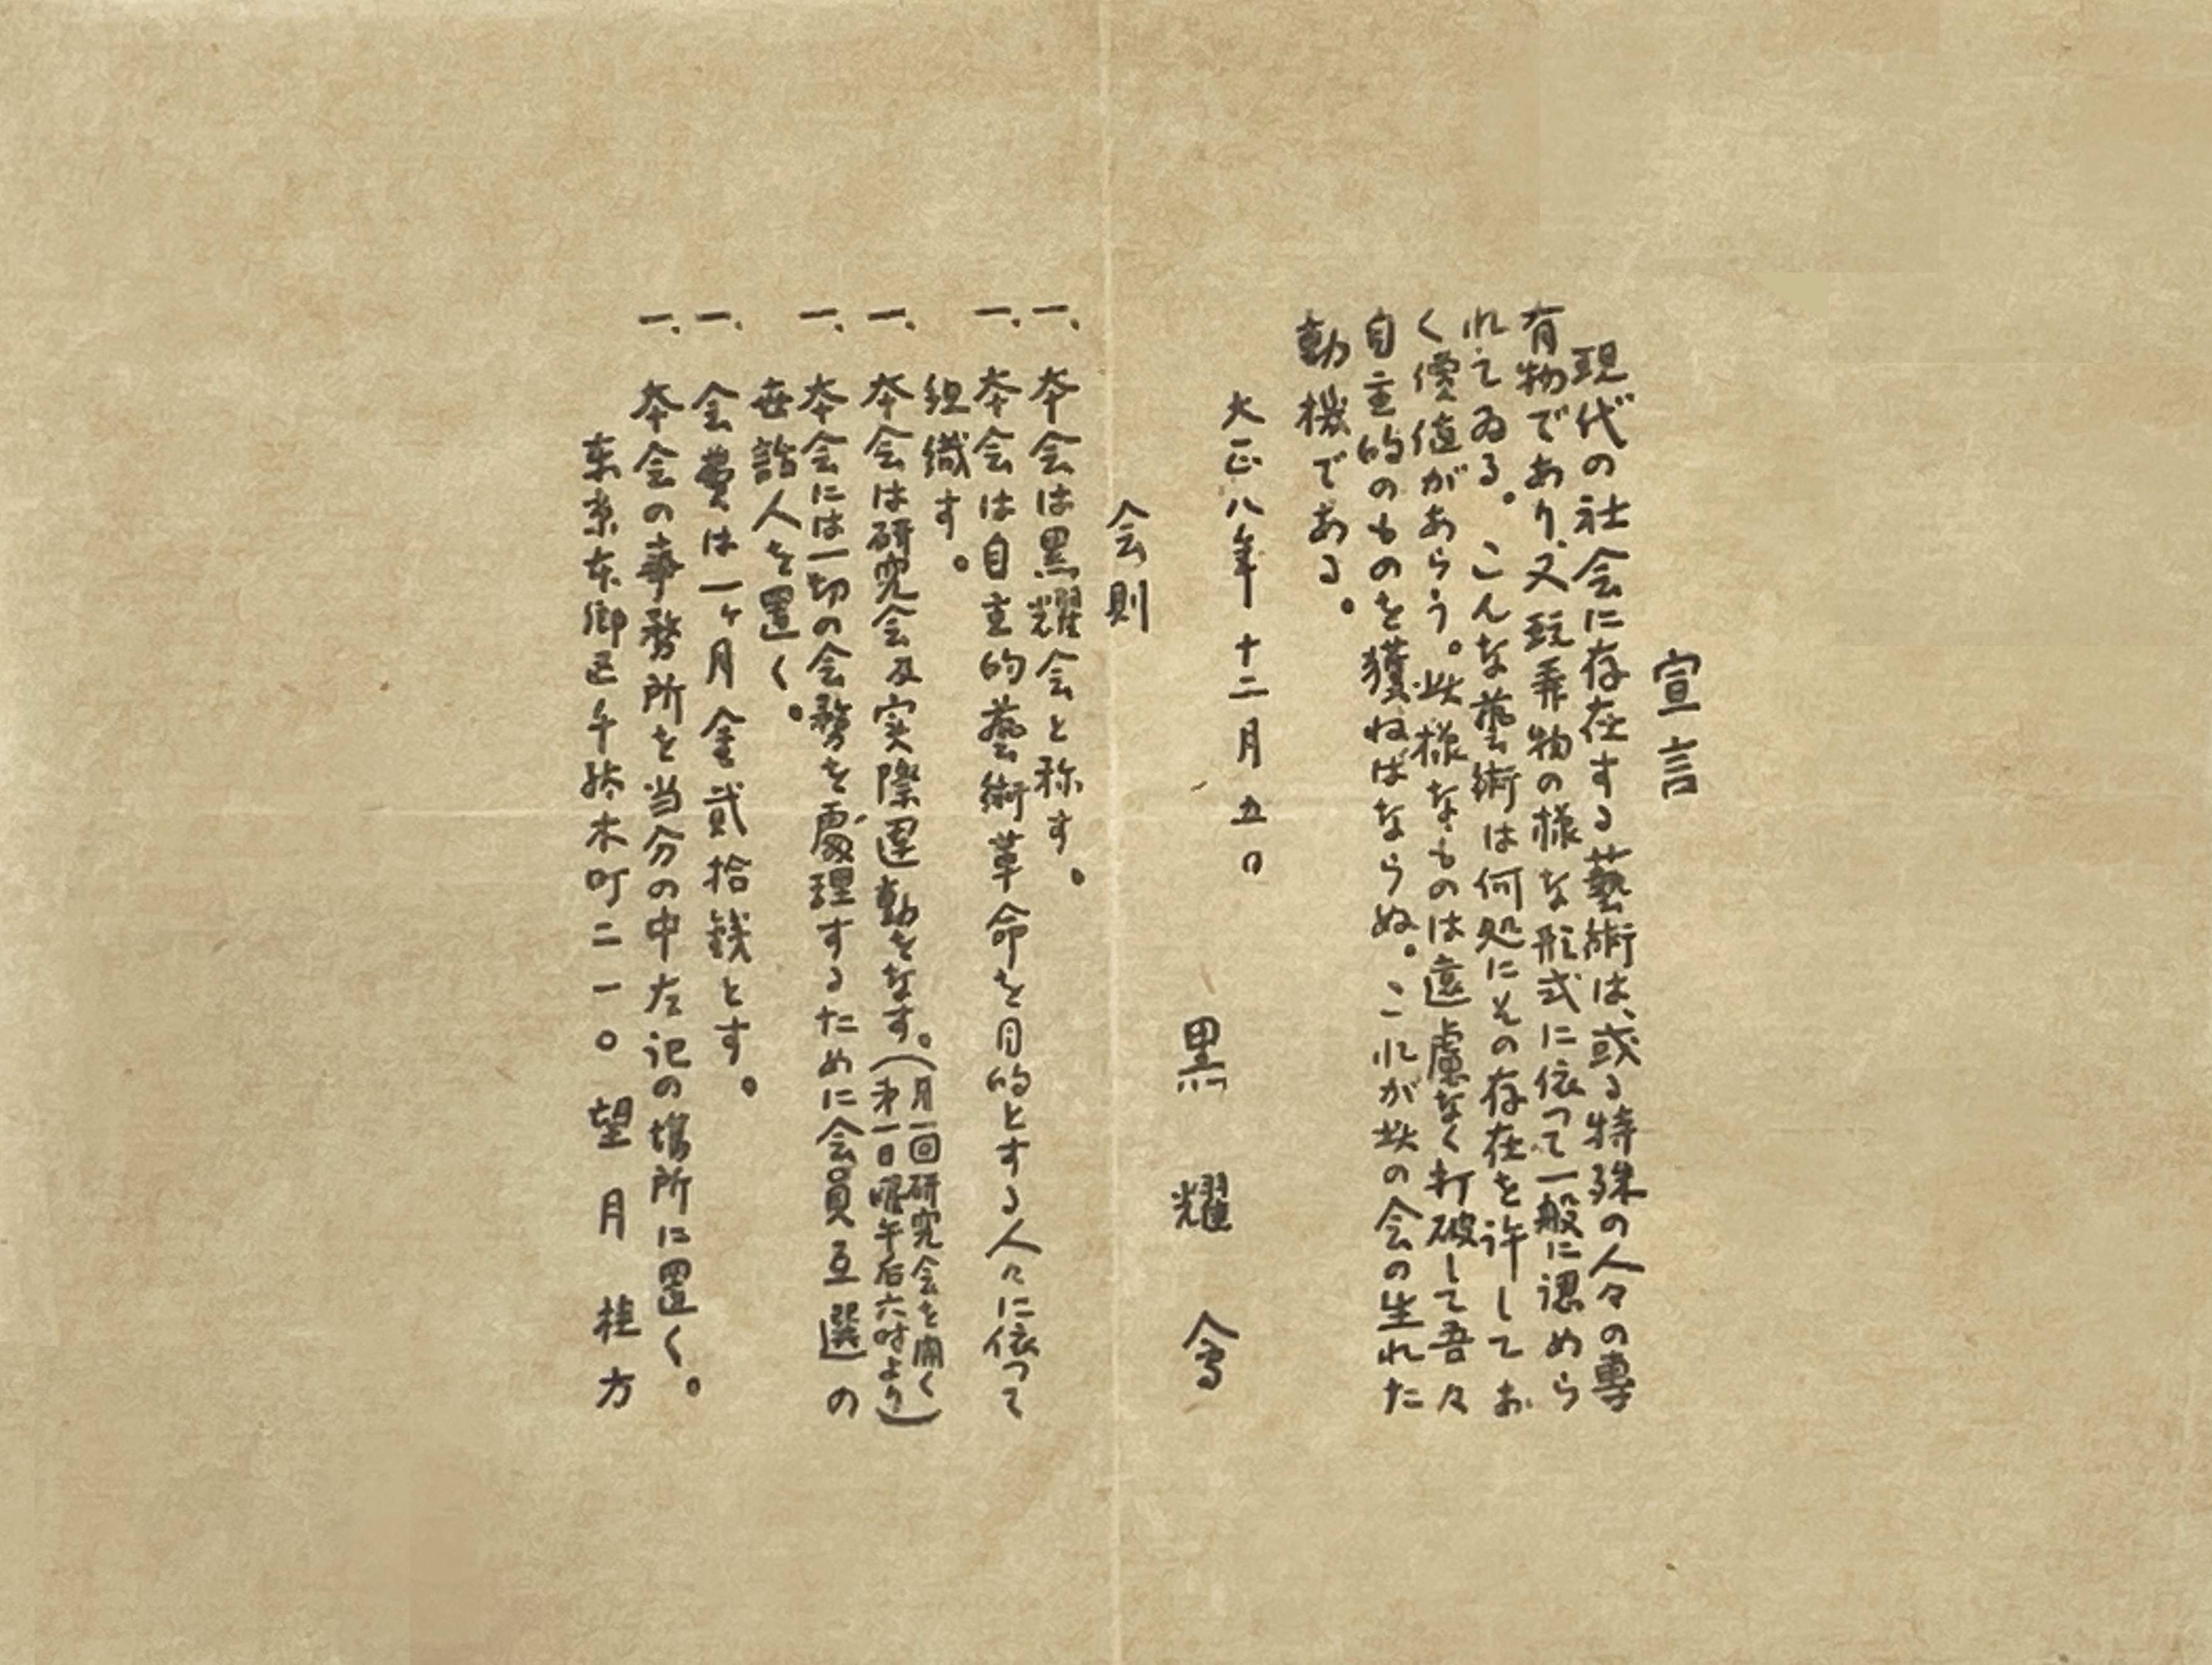 宣言
現代の社会に存在する藝術は、或る特殊の人々の専
有物であり、又玩弄物の様な形式に依って一般に認めら
れてゐる。こんな藝術は何処にその存在を許してお
く價値があらう。此様なものは遠慮なく打破して吾々
自主的のものを獲ねばならぬ。これが此の会の生れた
動機である。
大正八年十二月五日
黒耀會
会則
一、本会は黒耀会と称す。
一、本会は自主的藝術革命を目的とする人々に依って
組織す。
一、本会は研究会及実際運動をなす。(月一回研究会を開く
才一日曜午后六时より)
一、本会には一切の会務を處理するために会員互選の
世話人を置く。
一、会費は一ヶ月金貳拾銭とす。
一、本会の事務所を当分の中左記の場所に置く。
東京本郷区千駄木町二一〇 望月桂方